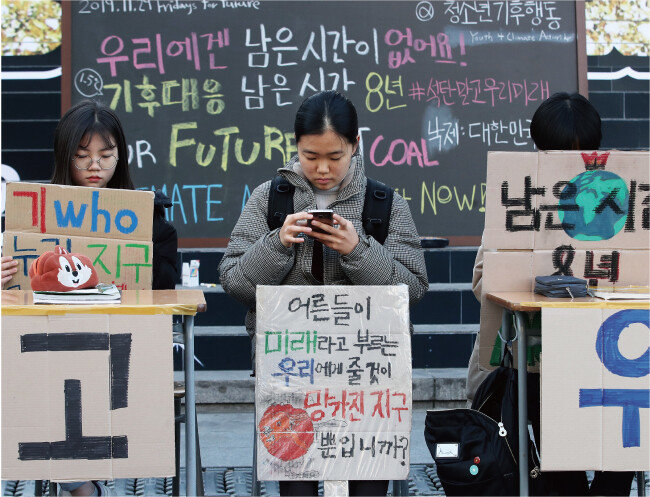 2019.11.29 Fridays for Future
@ 청소년기후행동
Youth 4 Climate Action
우리에겐 남은시간이 없어요!
1.5℃
기후대응 남은시간 8년 #석탄말고우리미래
낙제:대한민국
OUR FUTURE NOT COAL
CLIMATE NOW!!
기 who
누리 지구
남은 시간
8년
고
우
어른들이
미래라고 부르는
우리에게 줄 것이
망가진 지구
뿐입니까?